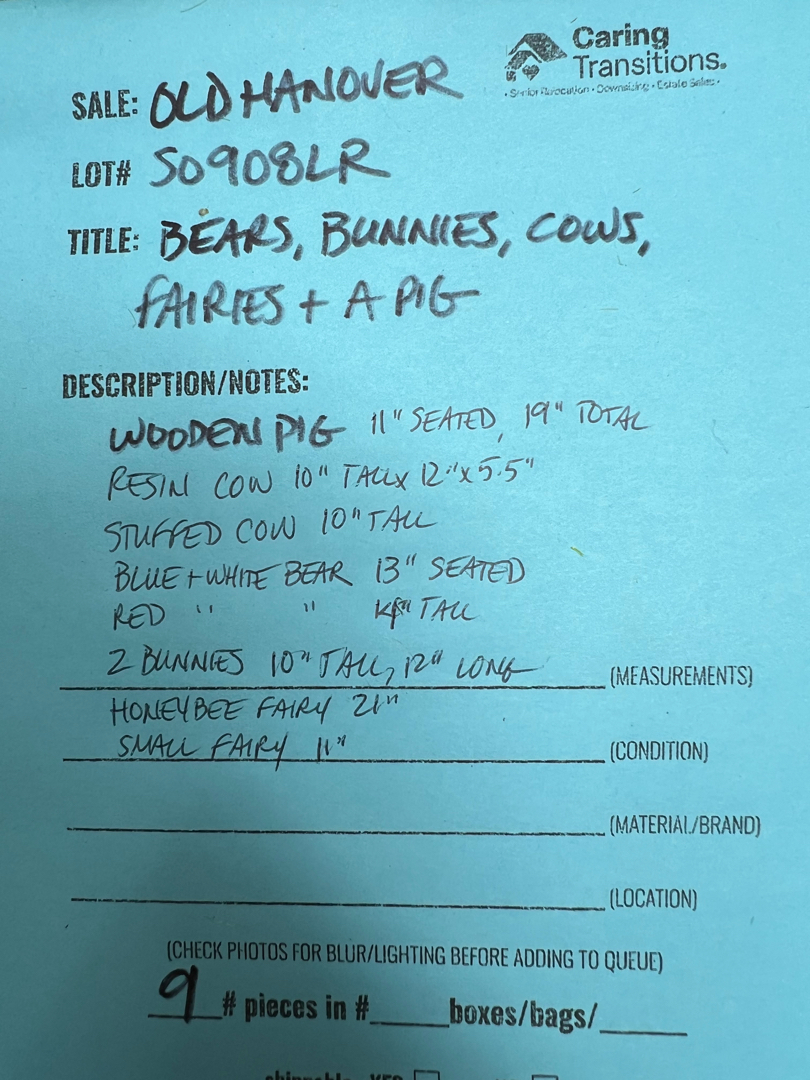 Caring
Transitions.
• Senior Relocation • Downsizing • Estate Sales •
SALE: OLD HANOVER
LOT# S0908LR
TITLE: BEARS, BUNNIES, COWS,
FAIRIES + A PIG
DESCRIPTION/NOTES:
WOODEN PIG 11" SEATED, 19" TOTAL
RESIN COW 10" TALL x 12" x 5.5"
STUFFED COW 10" TALL
BLUE + WHITE BEAR 13" SEATED
RED " " TALL
2 BUNNIES 10" TALL, 12" LONG (MEASUREMENTS)
HONEYBEE FAIRY 21"
SMALL FAIRY 11" (CONDITION)
(MATERIAL/BRAND)
(LOCATION)
(CHECK PHOTOS FOR BLUR/LIGHTING BEFORE ADDING TO QUEUE)
9 # pieces in # boxes/bags/